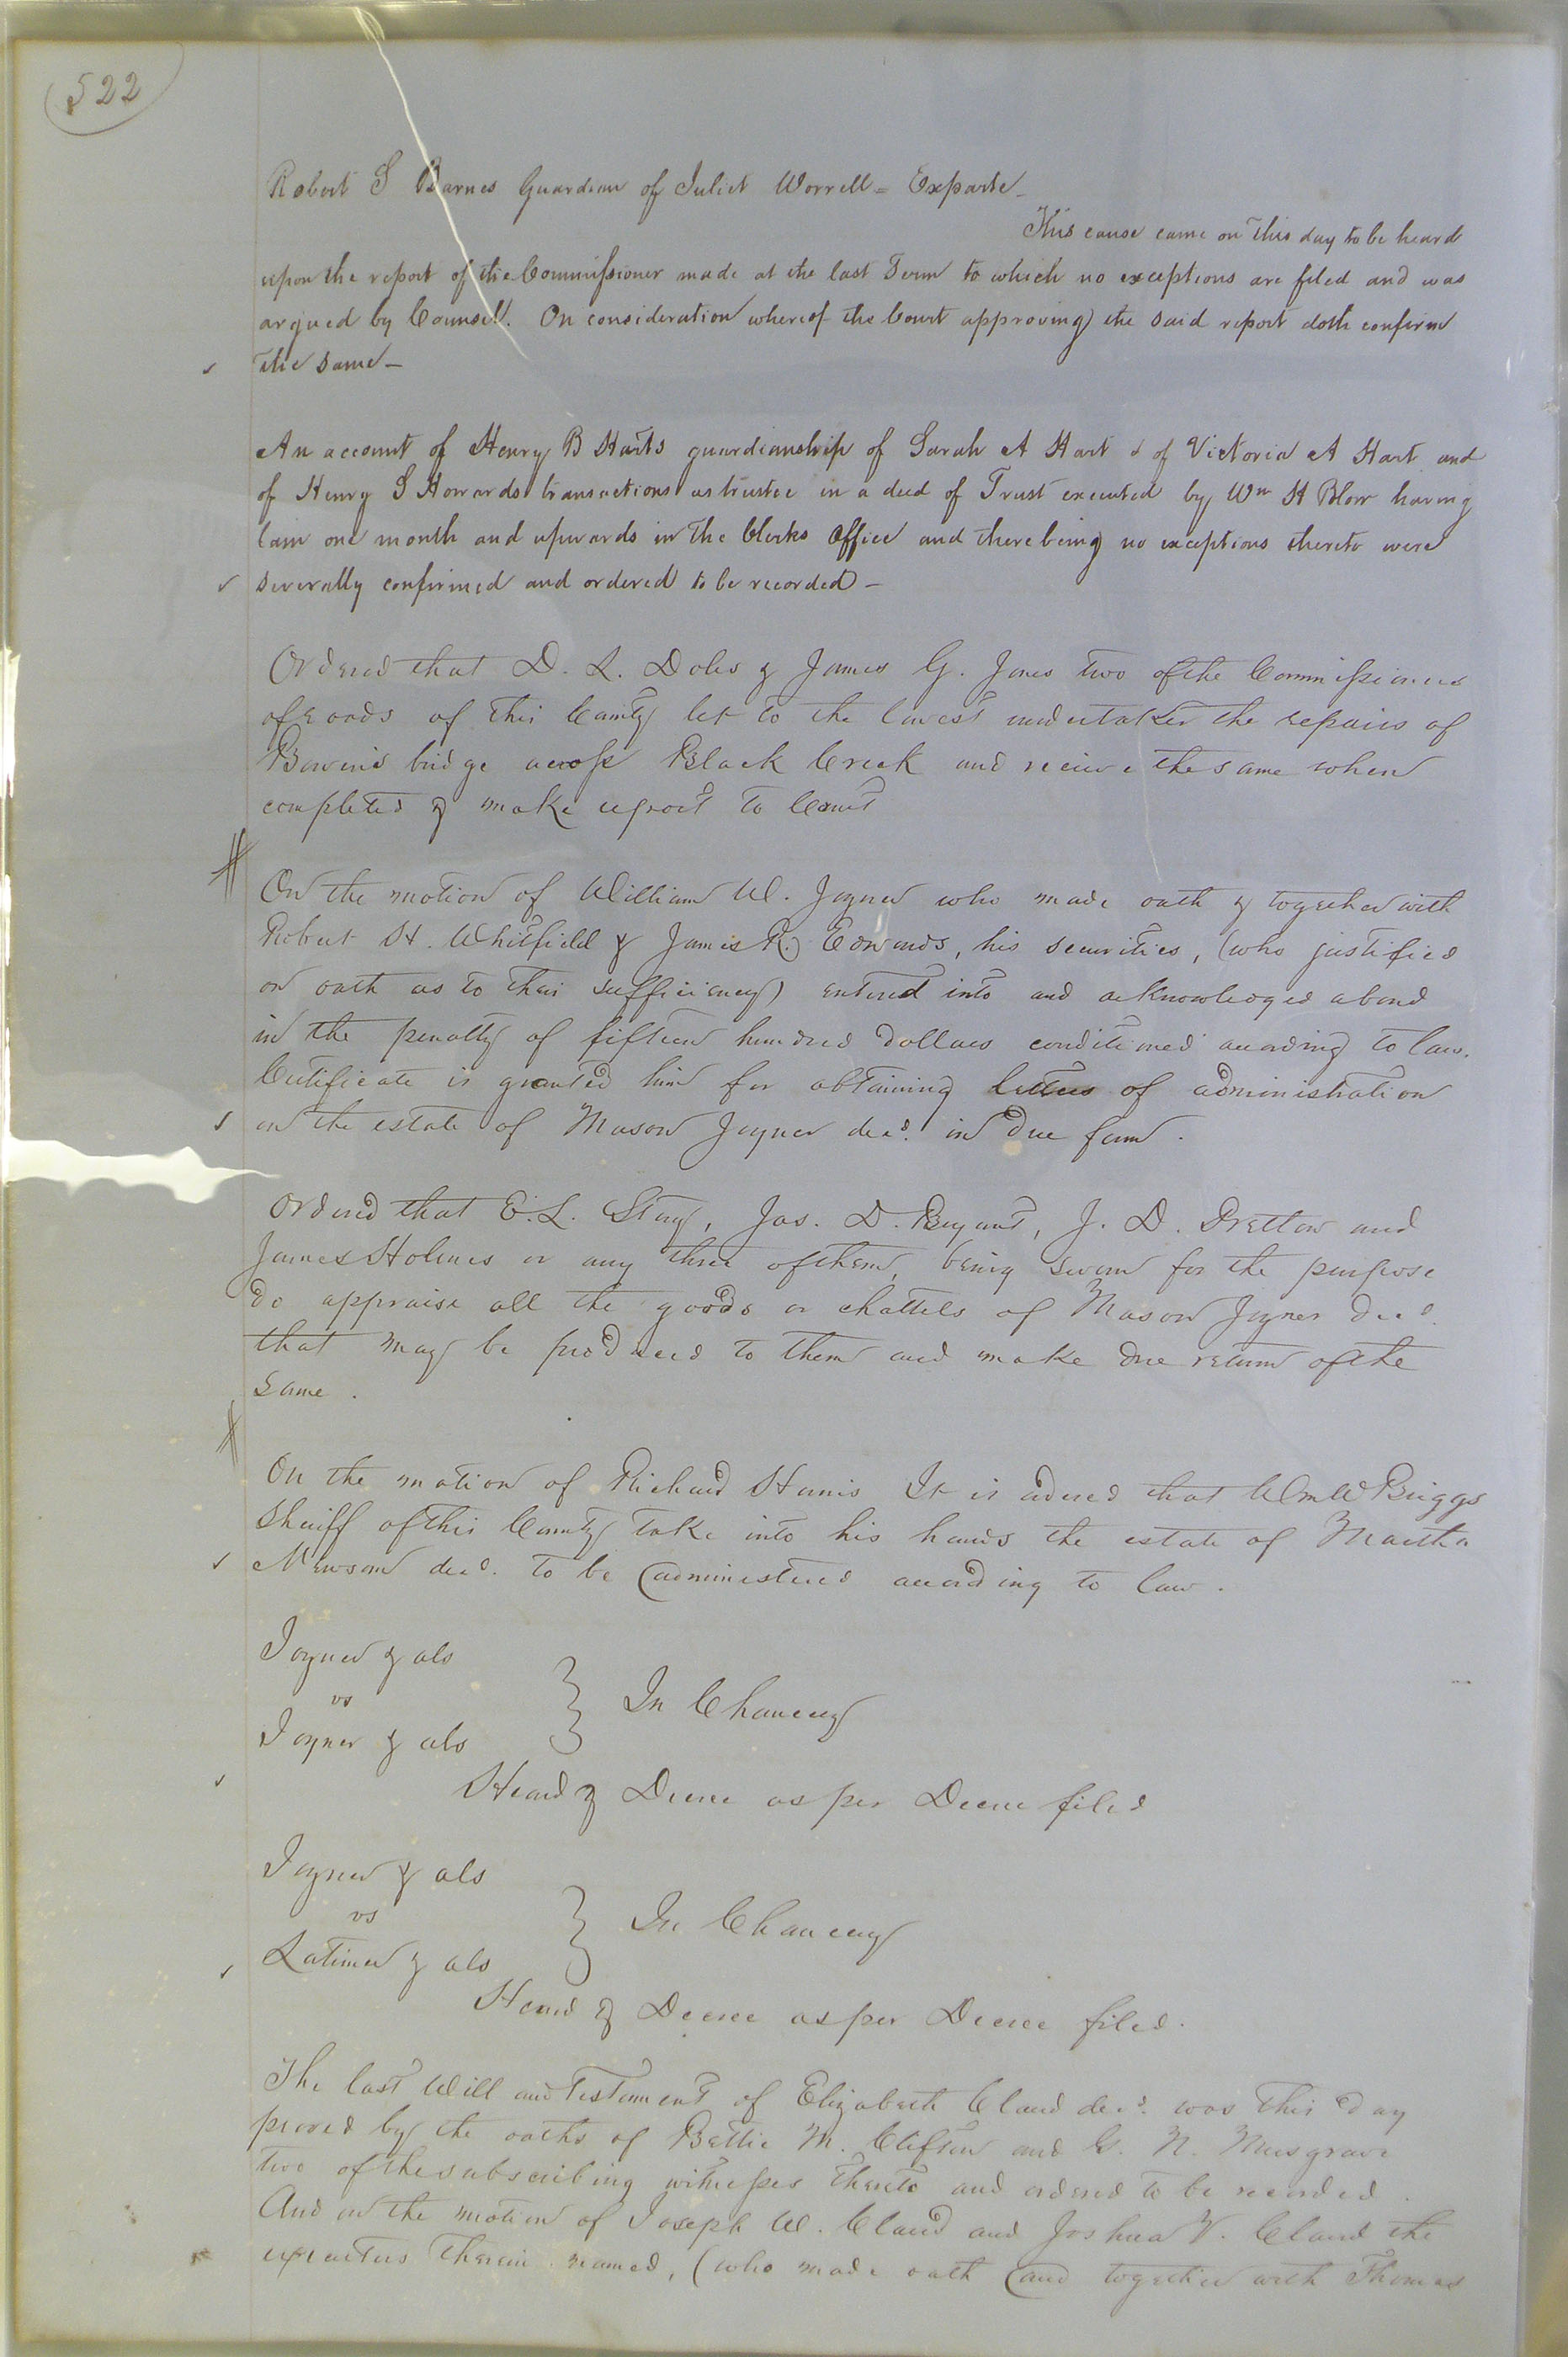 522
Robert S Barnes Guardian of Juliet Worrell = Exparte -
This cause came on this day to be heard
upon the report of the Commissioner made at the last Term to which no exceptions are filed and was
argued by Counsell. On consideration whereof the Court approving the said report doth confirm
the same -
An account of Henry B Harts guardianship of Sarah A Hart & of Victoria A Hart and
of Henry S Howards transactions as trustee in a deed of Trust executed by Wm H Blow having
lain one month and upwards in the Clerks Office and there being no exceptions thereto were
severally confirmed and ordered to be recorded -
Ordered that D. L. Doles & James G. Jones two of the Commissioners
of roads of this County let to the lowest undertaker the repairs of
Bowin's bridge across Black Creek and receive the same when
completed & make report to Court
On the motion of William W. Joyner who made oath & together with
Robert H. Whitfield & James R. Edwards, his securities, (who justified
on oath as to their sufficiency) entered into and acknowledged a bond
in the penalty of fifteen hundred dollars conditioned according to law.
Certificate is granted him for obtaining letters of administration
on the estate of Mason Joyner decd. in due form.
Ordered that E. L. Story, Jas. D. Bryant, J. D. Pretlow and
James Holmes or any three of them, being sworn for the purpose
do appraise all the goods or chattels of Mason Joyner decd.
that may be produced to them and make due return of the
same.
On the motion of Richard Harris It is ordered that Wm W Briggs
Sheriff of this County take into his hands the estate of Martha
Newsom decd. to be administered according to law.
Joyner & als
vs
Joyner & als
In Chancery
Heard & Decree as per Decree filed
Joyner & als
vs
Latimer & als
In Chancery
Heard & Decree as per Decree filed.
The last Will and Testament of Elizabeth Claud decd. was this day
proved by the oaths of Bettie M. Clifton and G. N. Musgrave
two of the subscribing witnesses thereto and ordered to be recorded.
And on the motion of Joseph W. Claud and Joshua V. Claud the
executors therein named, (who made oath and together with Thomas